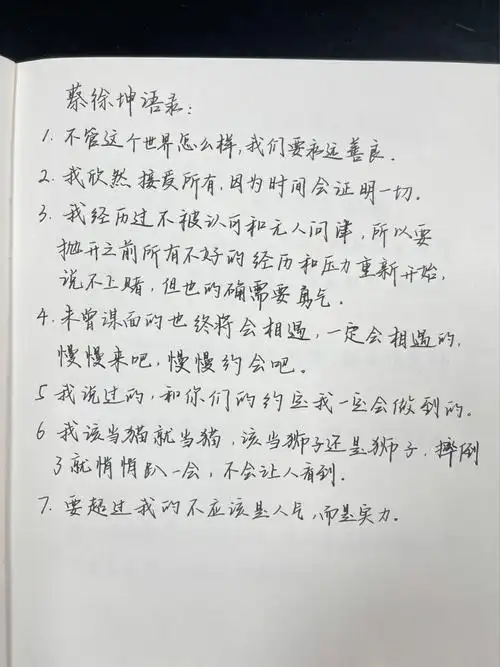 蔡徐坤语录：
1. 不管这个世界怎么样,我们要永远善良.
2. 我欣然接受所有,因为时间会证明一切.
3. 我经历过不被认可和无人问津,所以要
抛开之前所有不好的经历和压力重新开始,
说不上赌,但也的确需要勇气.
4. 未曾谋面的也终将会相遇,一定会相遇的,
慢慢来吧,慢慢约会吧。
5 我说过的,和你们的约定我一定会做到的.
6 我该当猫就当猫,该当狮子还是狮子.摔倒
了就悄悄趴一会,不会让人看到.
7. 要超过我的不应该是人气,而是实力.